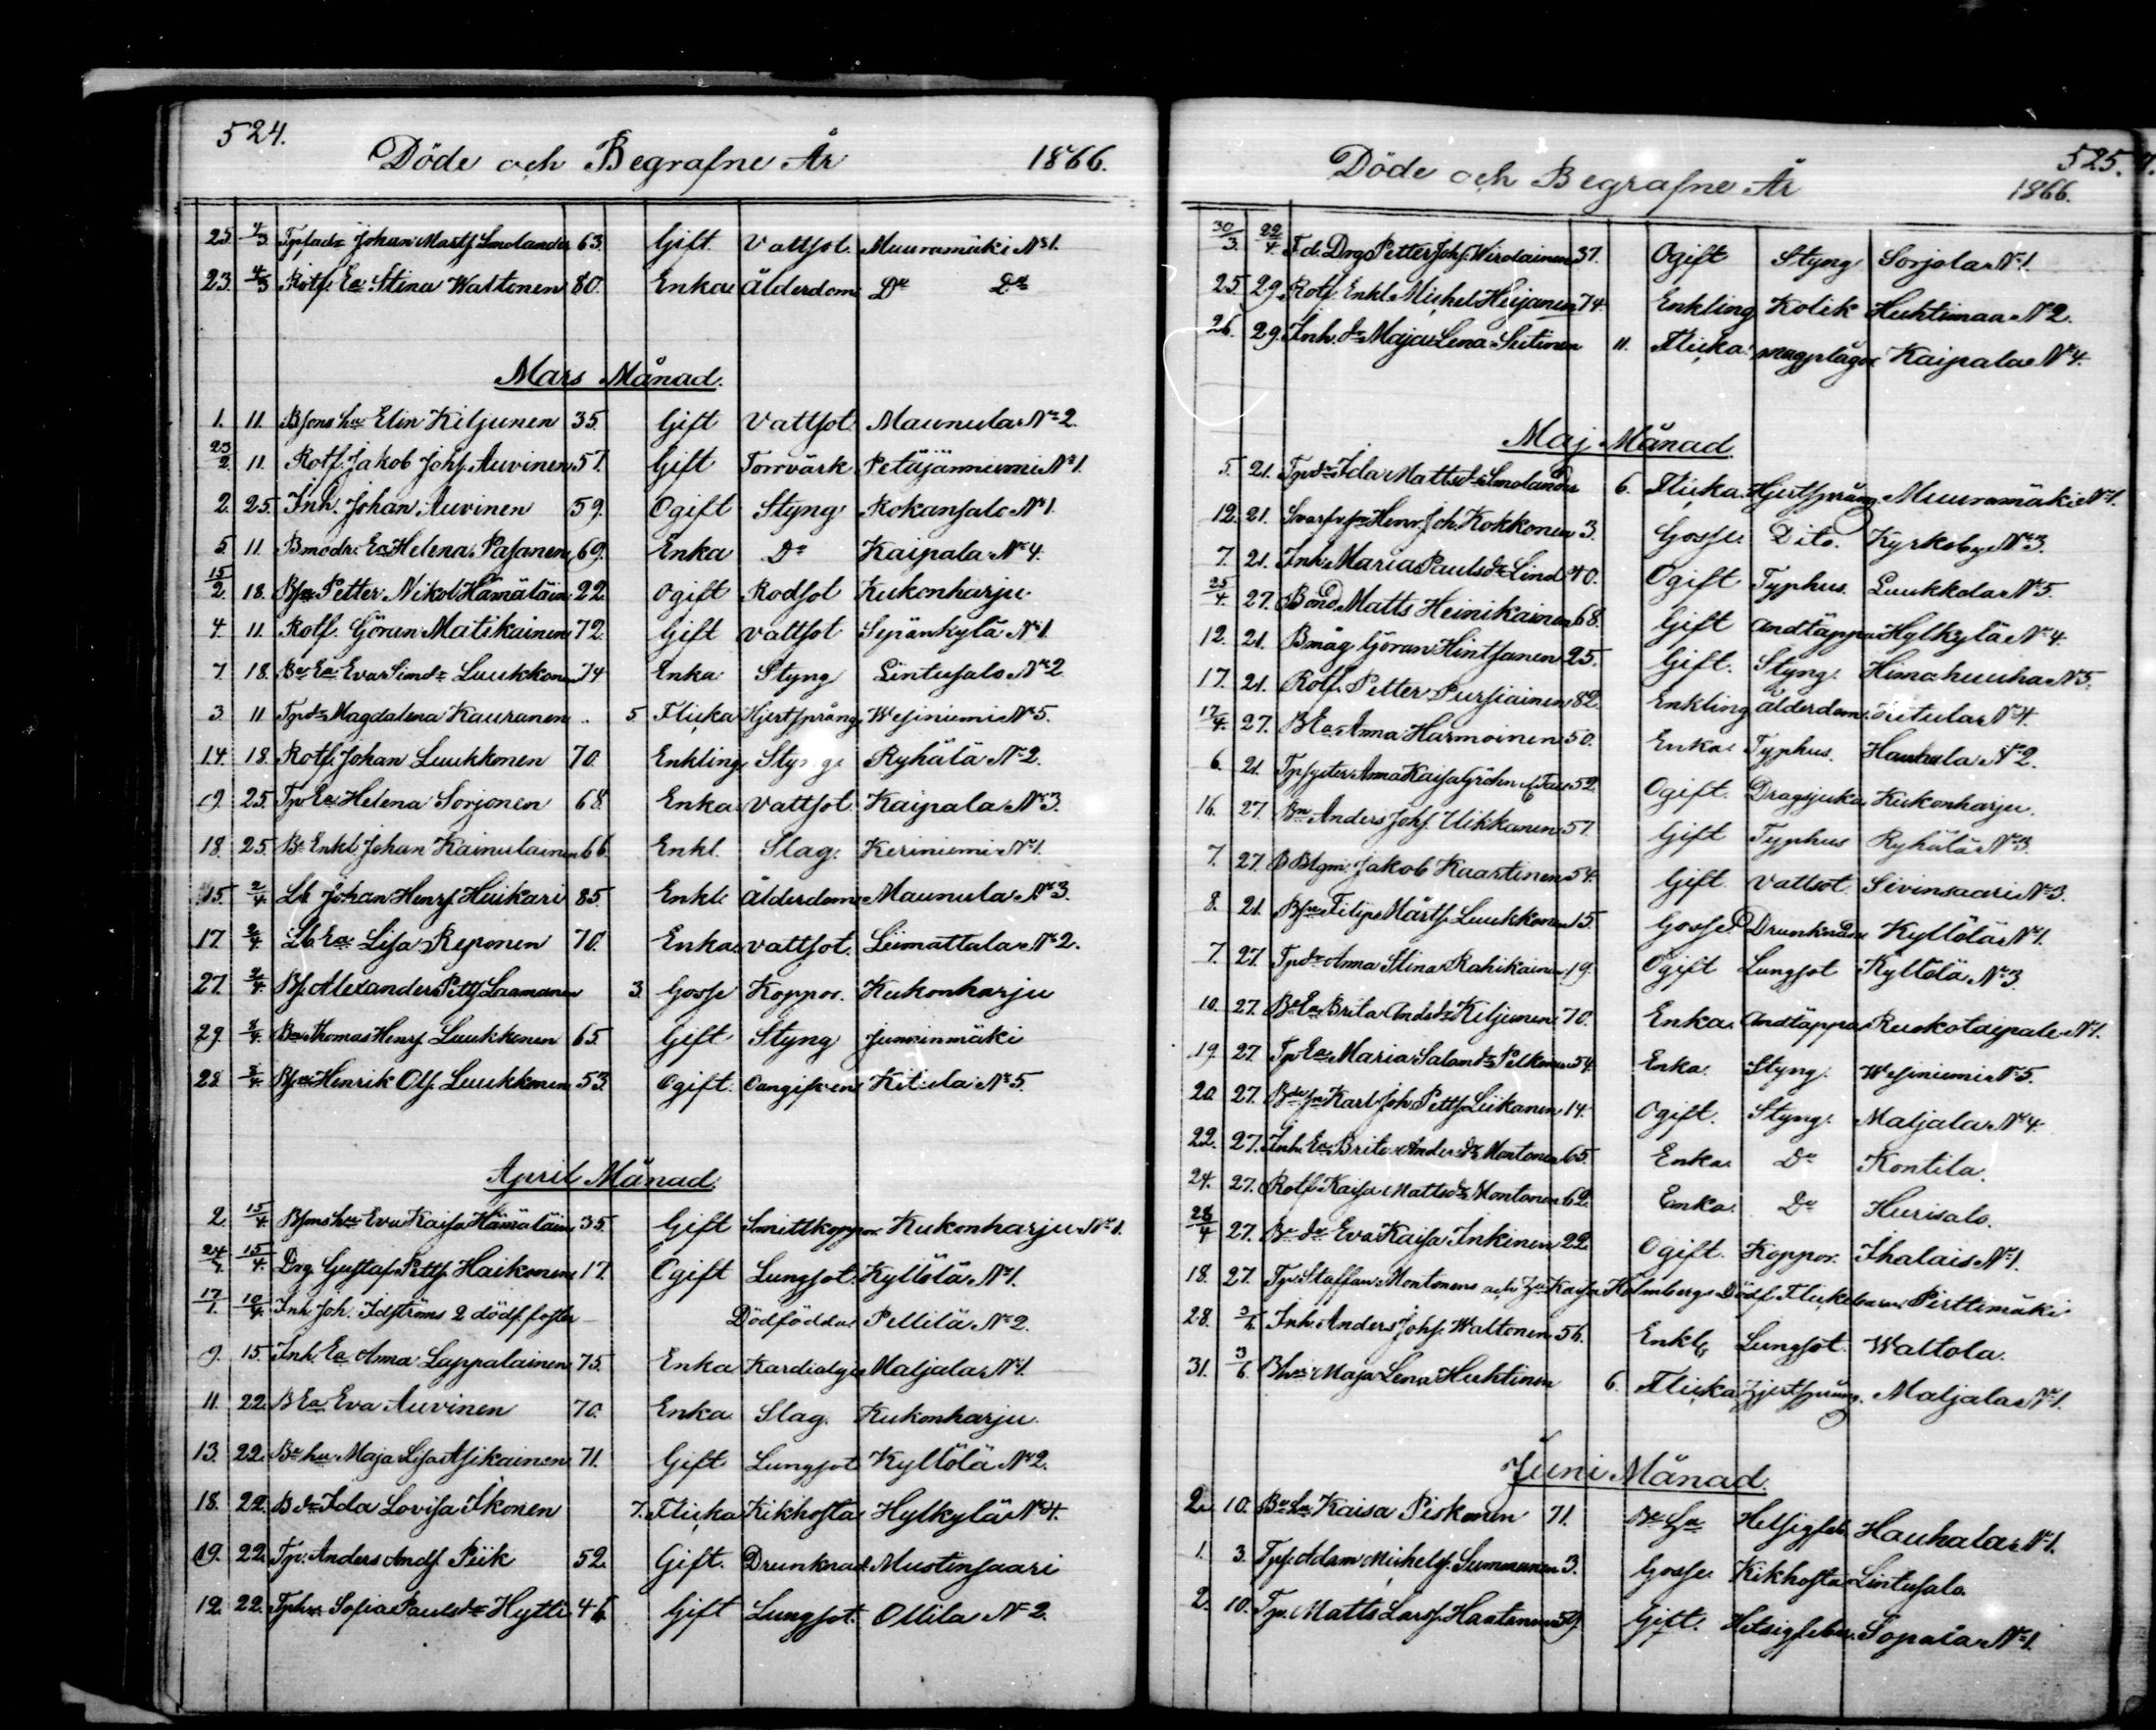 524.
Döde och Begrafne År 1866.
25. 4/3 Tpfadr Johan Matts Smolander 63. Gift Vattsot. Muuramäki No 1.
23. 4/3 Rotf. Ea Stina Waltonen 80. Enka Ålderdom Do Do
Mars Månad.
1. 11. Bsons hu Elin Kiljunen 35. Gift Vattsot. Maunula No 2.
23/2. 11. Rotf. Jakob Johs. Auvinen 57. Gift Torrvärk Petäjäniemi No 1.
2. 25. Inh. Johan Auvinen 59. Ogift Styng Rokansalo No 1.
5. 11. Bmodr. Ea Helena Pasanen 69. Enka Do Kaipala No 4.
15/2. 18. Bsn Petter Nikol Hämäläin 22. Ogift Rodsot Kukonharju
4. 11. Rotf. Göran Matikainen 72. Gift Vattsot Sepänkylä No 1.
7. 18. Be Ea Eva Simdr Luukkonen 74 Enka Styng Lintusalo No 2
3. 11 Tpdr Magdalena Kauranen .. 5. Flicka Hjertsprång Wesiniemi No 5.
14. 18. Rotf. Johan Luukkonen 70. Enkling Styng Ryhälä No 2.
9. 25. Tp Ea Helena Sorjonen 68. Enka Vattsot. Kaipala No 3.
18. 25. Be Enkl Johan Kainulainen 66. Enkl. Slag. Keriniemi No 1.
15. 2/4. Lb Johan Henrs Huikari 85. Enkl. Ålderdom Maunula No 3.
17. 2/4. Lb Ea Lisa Reponen 70. Enka Vattsot. Liimattala No 2.
27. 2/4. Bs. Alexander Petts Laamanen 3. Gosse Koppor. Kukonharju
29. 8/4. Bn Thomas Henrs Luukkonen 65. Gift Styng Junninmäki
28. 8/4. Bsn Henrik Ols. Luukkonen 53. Ogift. Oangifven Kitula No 5.
April Månad.
2. 15/4. Bsons hu Eva Kaisa Hämäläin 35. Gift Smittkoppor Kukonharju No 1.
15/4. Drg Gustaf Petts Haikonen 17. Ogift Lungsot. Kyllölä No 1.
17/1. 10/4. Inh Joh. Idströms 2 dödf. foster Dödfödda Pellilä No 2.
9. 15. Inh. Ea Anna Lappalainen 75. Enka Kardialgi Maljala No 1.
11. 22. B Ea Eva Auvinen 70. Enka Slag. Kukonharju.
13. 22. Be hu Maja Lisa Asikainen 71. Gift Lungsot Kyllölä No 2.
18. 22. B dr Ida Lovisa Ikonen 7. Flicka Kikhosta Hylkylä No 4.
19. 22. Tp. Anders Ands Piik 52. Gift. Drunknad Mustinsaari
12. 22. Tphu Sofia Paulsdr Hytti 46 Gift Lungsot. Ollila No 2.
525.
Döde och Begrafne År 1866.
30/3. 22/4. F. d. Drg Petter Johs. Wirolainen 37. Ogift Styng Sorjola No 1.
25. 29. Rotf. Enkl. Michel Heijanen 74. Enkling Kolik Huhtimaa No 2.
26. 29. Inh. dr Maja Lena Seitinen 11. Flicka magplågor Kaipala No 4.
Maj Månad.
5. 21. Tpdr Ida Mattsdr Smolander 6. Flicka Hjertsprång Muuramäki No 1.
12. 21. Svarfvsn Henr. Joh. Kokkonen 3. Gosse. Dito. Kyrkoby No 3.
7. 21. Inh. Maria Paulsdr Lind 40. Ogift Typhus. Luukkola No 5.
25/4. 27. Bond Matts Heinikainen 68. Gift Andtäppa Hylkylä No 4.
12. 21. Bmåg Göran Hintsanen 25. Gift. Styng. Himahuuha No 5.
17. 21. Rotf. Petter Pursiainen 82. Enkling Ålderdom Kitula No 4.
17/4. 27. B Ea Anna Härmoinen 50. Enka Typhus. Hauhala No 2.
6. 21. Tpsyster Anna Kaisa Gröhn 52. Ogift. Dragsjuka Kukonharju.
16. 27. Bn Anders Johs. Uikkanen 57. Gift Typhus Ryhälä No 3.
7. 27. Jakob Kaartinen 54. Gift Vattsot. Sivinsaari No 3.
8. 21. Bsn Filip Mårts. Luukkonen 15. Gosse Drunknad Kyllölä No 1.
7. 27. Tpdr Anna Stina Rahikainen 19. Ogift Lungsot Kyllölä No 3.
10. 27. Be Ea Brita Andsdr Kiljunen 70. Enka Andtäppa Ruokotaipale No 1.
19. 27. Tp Ea Maria Salamdr Pelkonen 54. Enka Styng. Wesiniemi No 5.
20. 27. Karl Joh. Petts. Liikanen 14. Ogift. Styng. Maljala No 4.
22. 27. Inh. Ea Brita Andersdr Montonen 65. Enka Do Kontila.
24. 27. Rotf. Kaisa Mattsdr Montonen 62. Enka Do Hurisalo.
28/4 27. Be dr Eva Kaisa Inkinen 22. Ogift. Koppor. Ihalais No 1.
18. 27. Tp. Staffan Montonens och Kaisa Holmbergs Dödf. Flickebarn Pirttimäki
28. 3/6. Inh. Anders Johs. Waltonen 56. Enklg Lungsot. Waltola.
31. 3/6. Maja Lena Huhtinen 6. Flicka Hjertsprång. Maljala No 1.
Juni Månad.
2. 10. Be hu Kaisa Piskonen 71. Be hu Hetsigfeb. Hauhala No 1.
1. 3. Tps. Adam Michels. Summanen 3. Gosse Kikhosta Lintusalo.
2. 10. Tp. Matts Larss. Haatanen 59. Gift. Hetsigfeber. Sopala No 1.